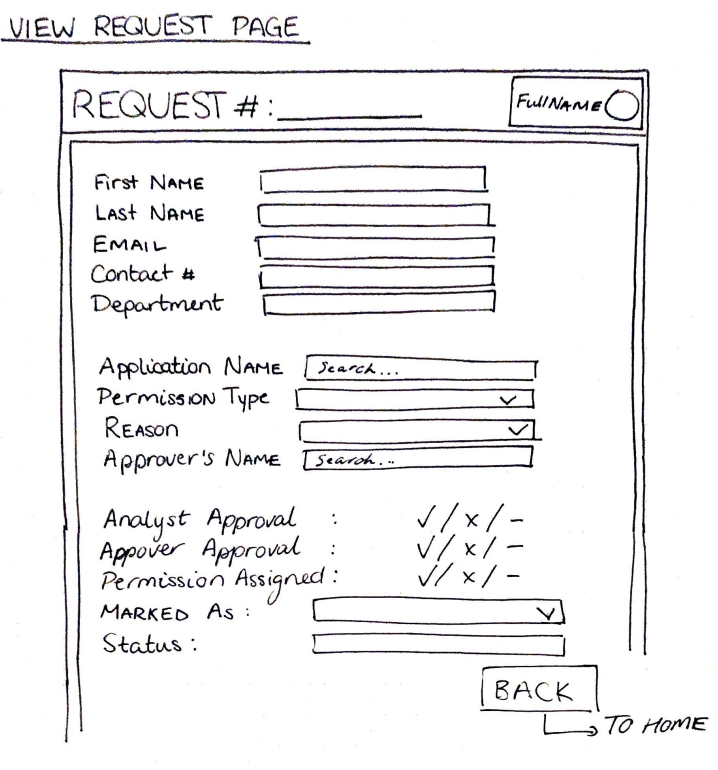 VIEW REQUEST PAGE
REQUEST #: FullNAME
First NAME
LAST NAME
EMAIL
Contact #
Department
Application NAME Search...
PERMISSION Type
REASON
Approver's NAME Search...
Analyst Approval : ✓ / x / -
Appover Approval : ✓ / x / -
Permission Assigned : ✓ / x / -
MARKED As :
Status :
BACK
TO HOME